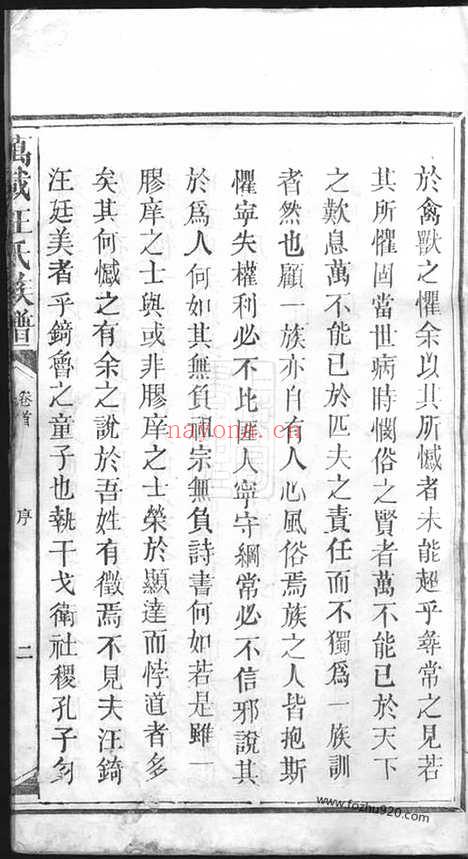 於禽獸之懼余以其所憾者未能超乎尋常之見若
其所懼固當世病時憫俗之賢者萬不能已於天下
之歎息萬不能已於匹夫之責任而不獨為一族訓
者然也顧一族亦自有人心風俗焉族之人皆抱斯
懼寧失權利必不比匪人寧守綱常必不信邪說其
於為人何如其無負祖宗無負詩書何如若是雖一
膠庠之士與或非膠庠之士榮於顯達而悖道者多
矣其何憾之有余之說於吾姓有徵焉不見夫汪錡
汪廷美者乎錡魯之童子也執干戈衛社稷孔子
萬載汪氏族譜
卷首
序
二
nayona.cn
www.fozhu920.com